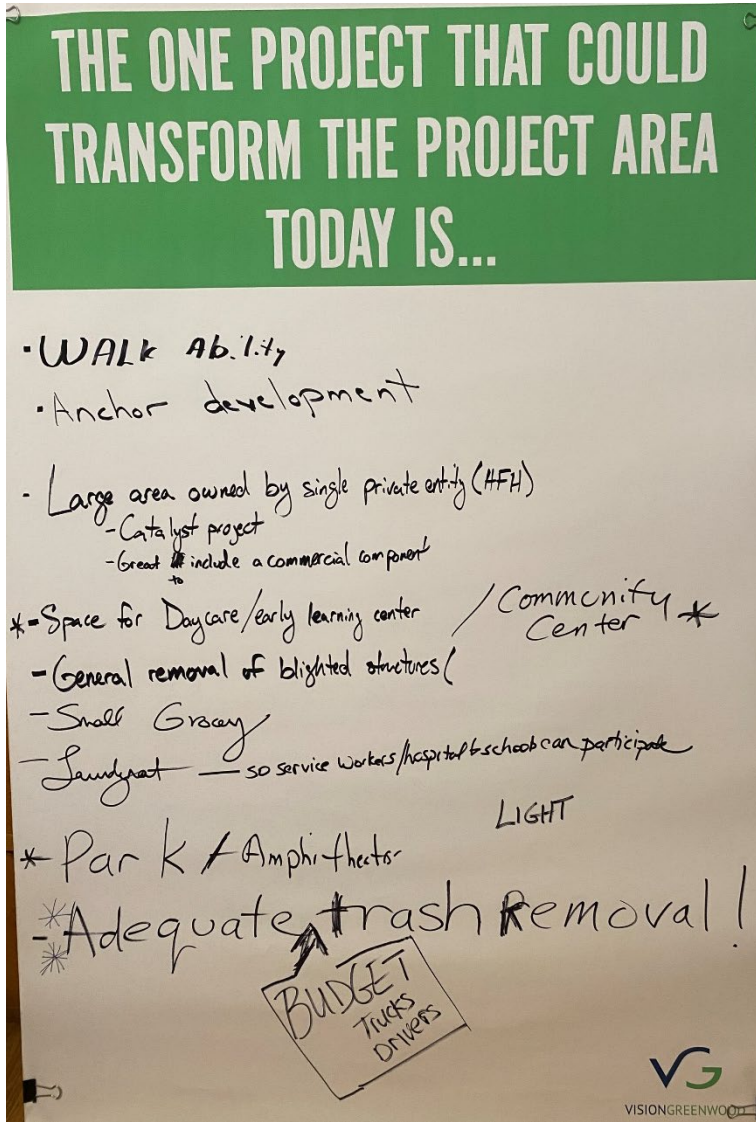 THE ONE PROJECT THAT COULD
TRANSFORM THE PROJECT AREA
TODAY IS...
· WALK Ability
· Anchor development
- Large area owned by single private entity (HFH)
- Catalyst project
- Great to include a commercial component
*- Space for Daycare/early learning center / Community Center *
- General removal of blighted structures (
- Small Grocey
- Laundymat — so service workers/hospital & school can participate
LIGHT
*- Park / Amphitheator
- Adequate trash Removal!
BUDGET
Trucks
Drivers
VG
VISIONGREENWOOD